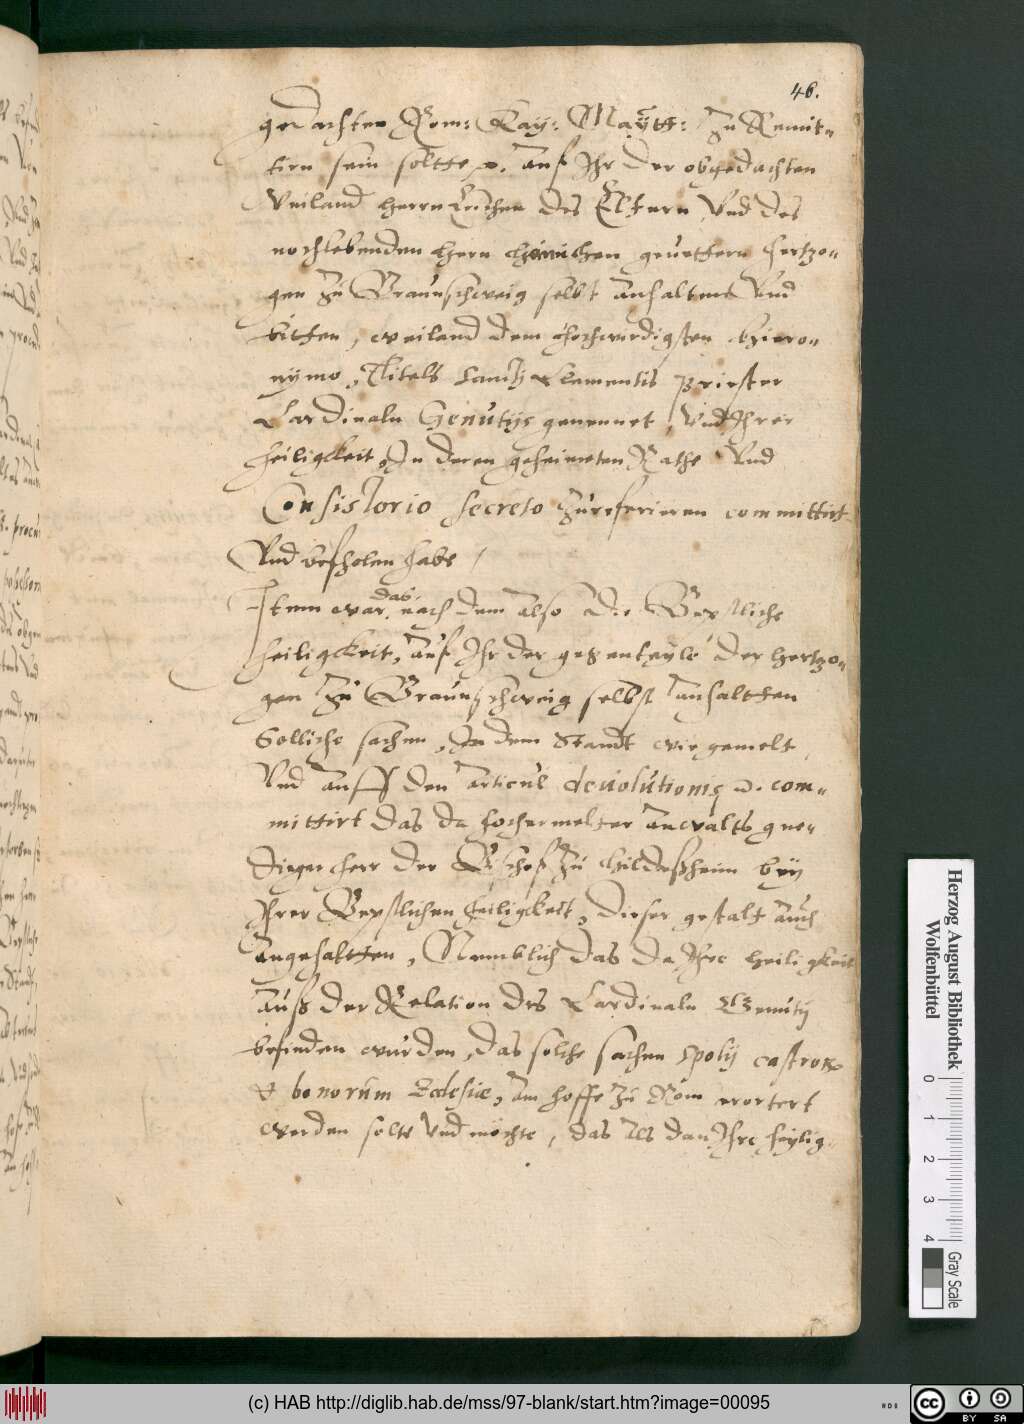 46.
gedachten Rom: Kay: Maytt: Zu Remit=
tirn sein soltte, auf Ihr der obgedachten
Weiland herrn Erichen des Eltern Vnd des
nochlebenden hern heinrichen geuettern hertzo=
gen Zu Braunschweig selbst anhaltent Vnd
bitten, weiland dem hochwirdigsten hiero=
nymo, Titels Sancti Clementis priester
Cardinaln Genutijs genennet, Vnd Ihrer
heiligkeit, In deren geheimeten Rathe Vnd
Consistorio secreto Zureferieren committirt
Vnd befholen habe /
Item war, das, nach dem also die Bepstliche
heiligkeit, auf Ihr der gegenteyle der hertzo=
gen Zu Braunschweig selbst anhaltten
Solliche sachen, In dem Standt wie gemelt,
Vnd auff den articul deuolutionis com=
mittirt das da hochermelter anwalts gne=
diger herr der Bischof Zu hildeßheim bey
Ihrer Bepstlichen heiligkeit, dieser gestalt auch
angehaltten, Nemblich das da Ihre heiligkeit
auß der Relation des Cardinaln Genutij
befinden wurden, das solche sachen spolij castrorum
& bonorum Ecclesiæ, am hoffe Zu Rom erortert
werden solte Vnd möchte, das als dan Ihre heylig
Herzog August Bibliothek
Wolfenbüttel
0 1 2 3 4
Gray Scale
(c) HAB http://diglib.hab.de/mss/97-blank/start.htm?image=00095
cc BY SA